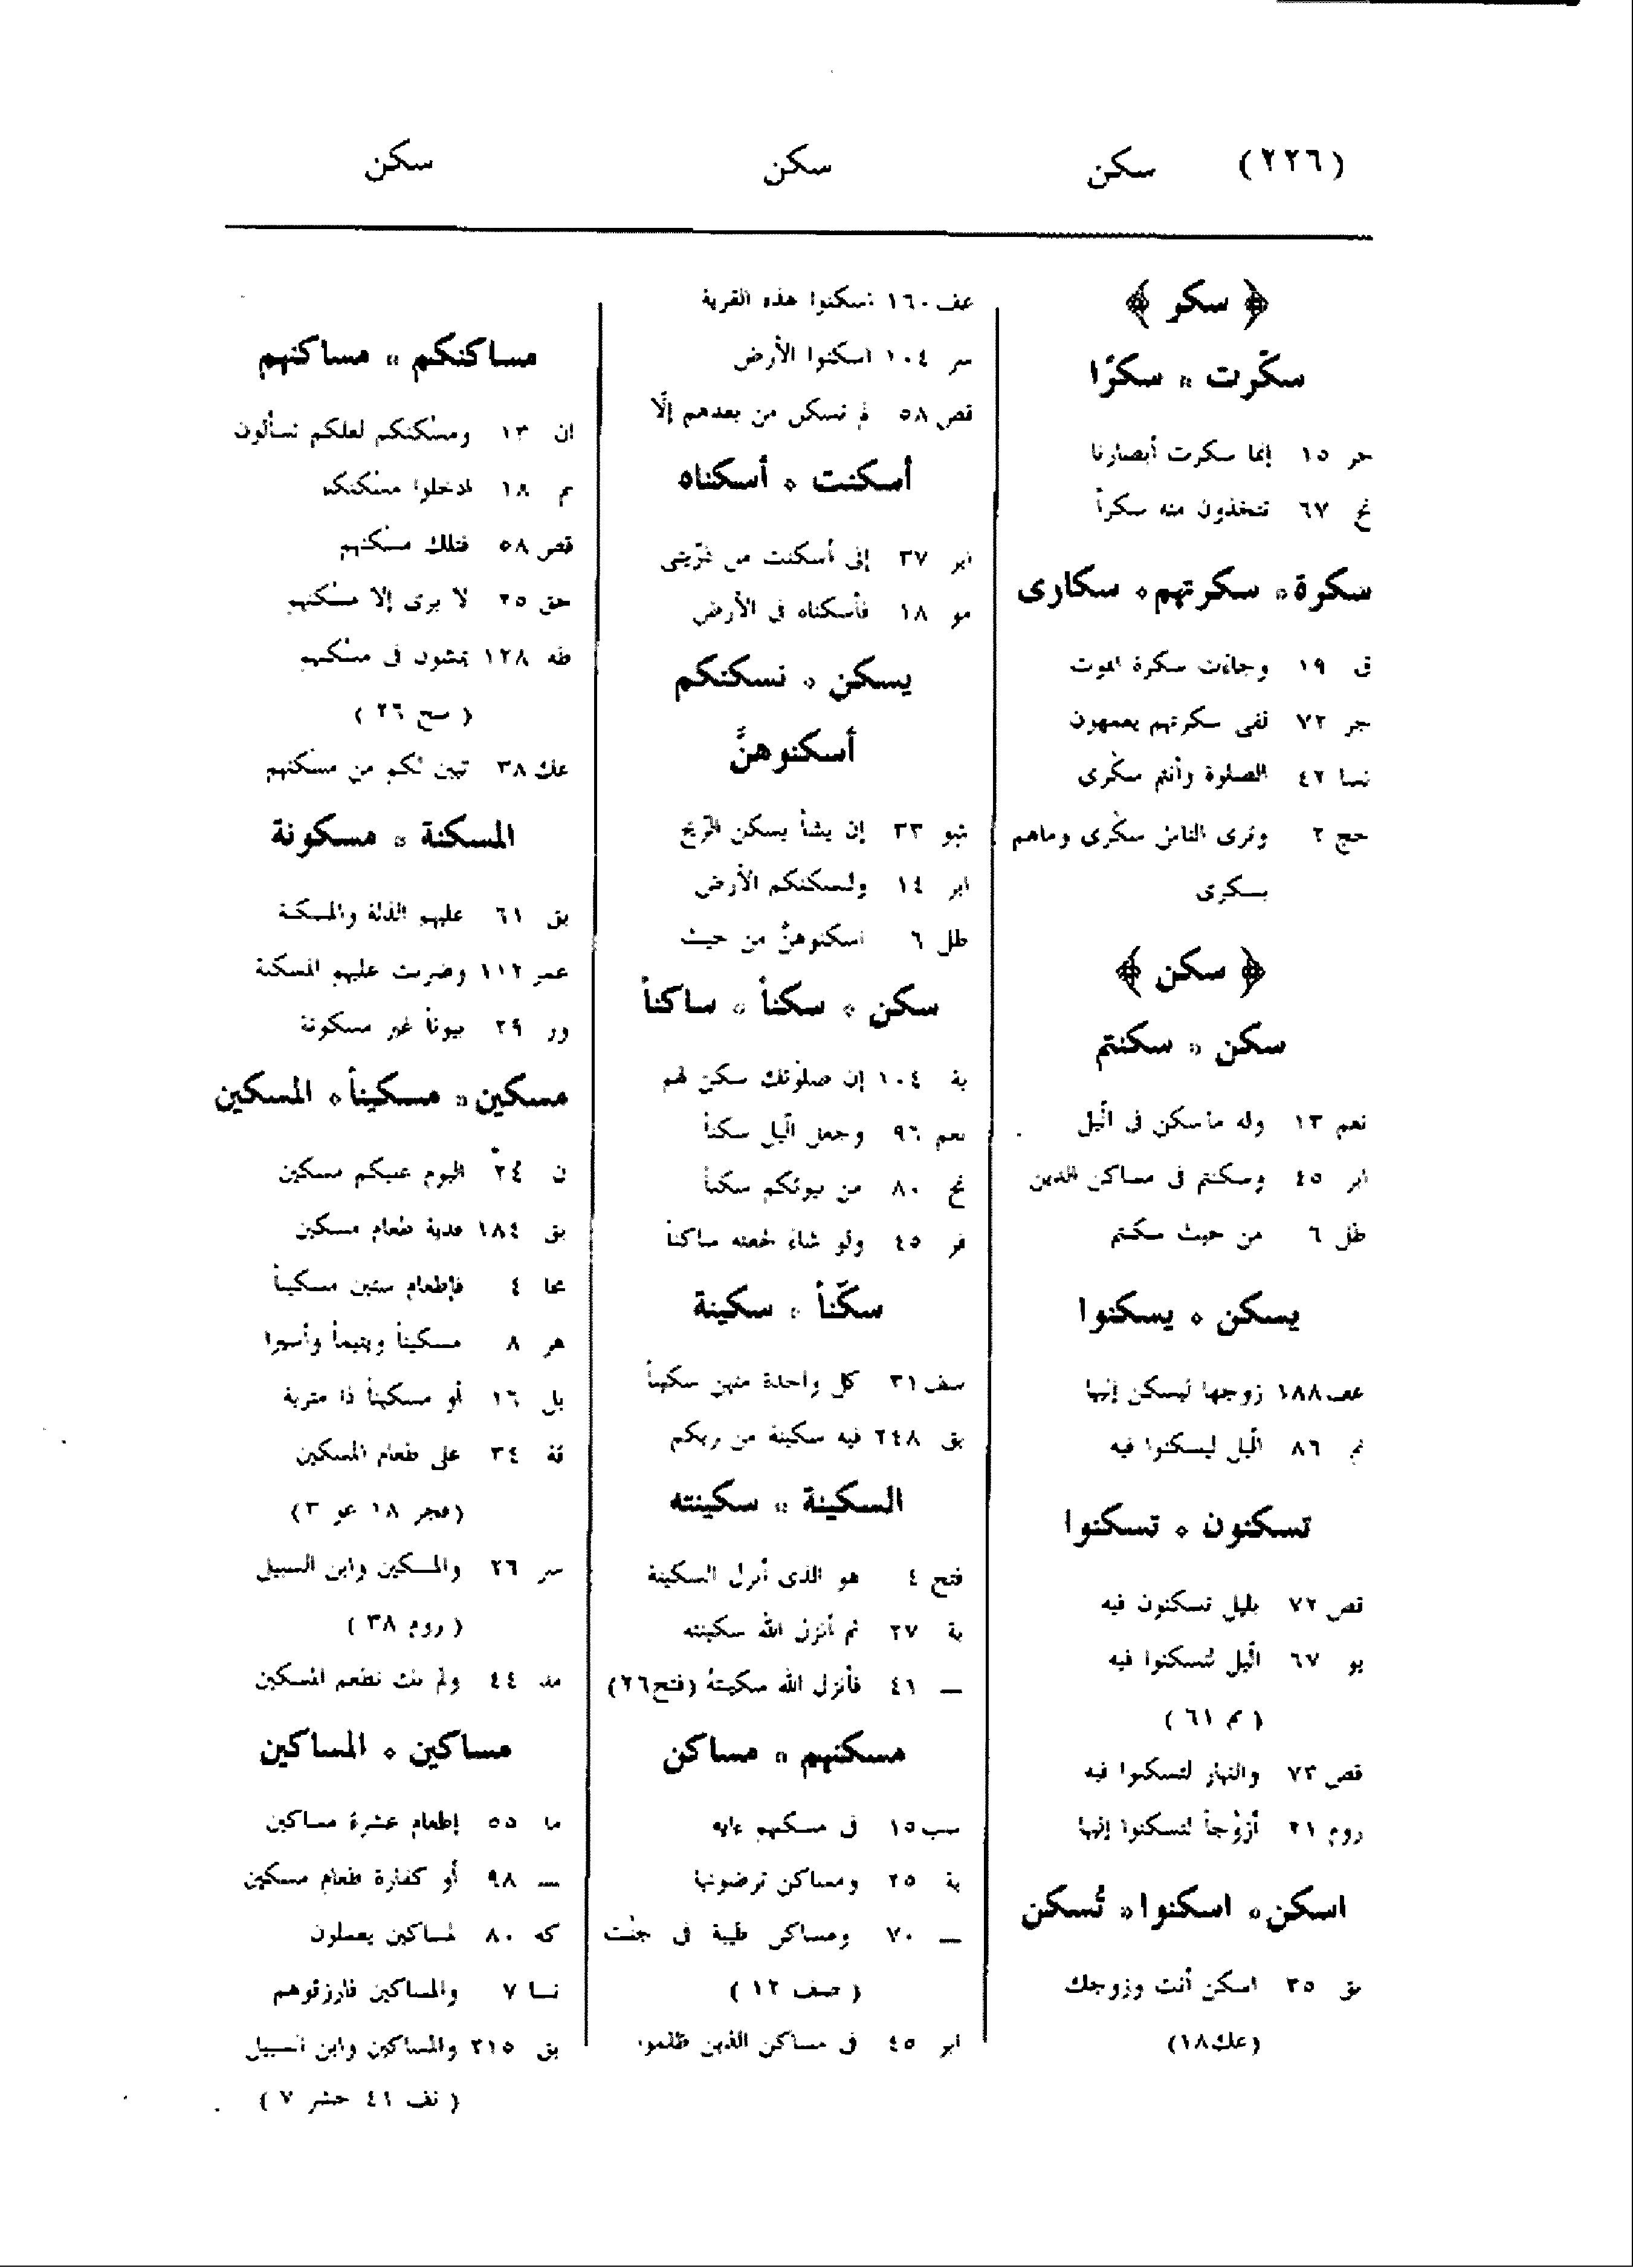 (٢٢٦) سكن
سكن
سكن
﴿ سكر ﴾
سكّرت * سكرًا
حر ١٥ إنما سكرت أبصارنا
نح ٦٧ تتخذون منه سكراً
سكرة * سكرتهم * سكارى
ق ١٩ وجاءت سكرة الموت
حر ٧٢ لفى سكرتهم يعمهون
نسا ٤٢ الصلوة وأنتم سكرى
حج ٢ وترى الناس سكرى وماهم
بسكرى
﴿ سكن ﴾
سكن * سكنتم
نعم ١٣ وله ماسكن فى الّيل
ابر ٤٥ وسكنتم فى مساكن الذين
طل ٦ من حيث سكنتم
يسكن * يسكنوا
عف ١٨٨ زوجها ليسكن إليها
نم ٨٦ الّيل ليسكنوا فيه
تسكنون * تسكنوا
قص ٧٢ بليل تسكنون فيه
يو ٦٧ الّيل لتسكنوا فيه
( مم ٦١ )
قص ٧٣ والنهار لتسكنوا فيه
روم ٢١ أزوٰجاً لتسكنوا إليها
اسكن * اسكنوا * تُسكن
بق ٣٥ اسكن أنت وزوجك
(عك١٨)
عف ١٦٠ اسكنوا هذه القرية
سر ١٠٤ اسكنوا الأرض
قص ٥٨ لم تسكن من بعدهم إلّا
أسكنت * أسكناه
ابر ٣٧ إنى أسكنت من ذرّيتى
مو ١٨ فأسكناه فى الأرض
يسكن * نسكنكم
أسكنوهنَّ
شو ٣٣ إن يشأ يسكن الرّيح
ابر ١٤ ولنسكننكم الأرض
طل ٦ اسكنوهنّ من حيث
سكن * سكناً * ساكناً
بة ١٠٤ إن صلوٰتك سكن لهم
نعم ٩٦ وجعل الّيل سكناً
نح ٨٠ من بيوتكم سكناً
فر ٤٥ ولو شاء لجعله ساكناً
سكّناً * سكينة
سف ٣١ كل واحدة منهن سكيناً
بق ٢٤٨ فيه سكينة من ربكم
السكينة * سكينته
فتح ٤ هو الذى أنزل السكينة
بة ٢٧ ثم أنزل الله سكينته
— ٤١ فأنزل الله سكينتهُ (فتح٢٦)
مسكنهم * مساكن
سب ١٥ فى مسكنهم ءاية
بة ٢٥ ومساكن ترضونها
— ٧٠ ومساكن طيبة فى جنٰت
( صف ١٢ )
ابر ٤٥ فى مساكن الذين ظلموا
مساكنكم * مساكنهم
ان ١٣ ومسٰكنكم لعلكم تسألون
نم ١٨ ادخلوا مسٰكنكم
قص ٥٨ فتلك مسٰكنهم
حق ٢٥ لا يرى إلا مسٰكنهم
طه ١٢٨ يمشون فى مسٰكنهم
( سج ٢٦ )
عك ٣٨ تبين لكم من مسٰكنهم
المسكنة * مسكونة
بق ٦١ عليهم الذلة والمسكنة
عمر ١١٢ وضربت عليهم المسكنة
ور ٢٩ بيوتاً غير مسكونة
مسكين * مسكيناً * المسكين
ن ٢٤ اليوم عليكم مسكين
بق ١٨٤ فدية طعام مسكين
مجا ٤ فإطعام ستين مسكيناً
هر ٨ مسكيناً ويتيماً وأسيرا
بل ١٦ أو مسكيناً ذا متربة
قة ٣٤ على طعام المسكين
(فجر ١٨ عو ٣)
سر ٢٦ والمسكين وابن السبيل
( روم ٣٨ )
مد ٤٤ ولم نك نطعم المسكين
مساكين * المساكين
ما ٥٥ إطعام عشرة مساكين
— ٩٨ أو كفارة طعام مسكين
كه ٨٠ لمساكين يعملون
نسا ٧ والمساكين فارزقوهم
بق ٢١٥ والمساكين وابن السبيل
( نف ٤١ حشر ٧ )